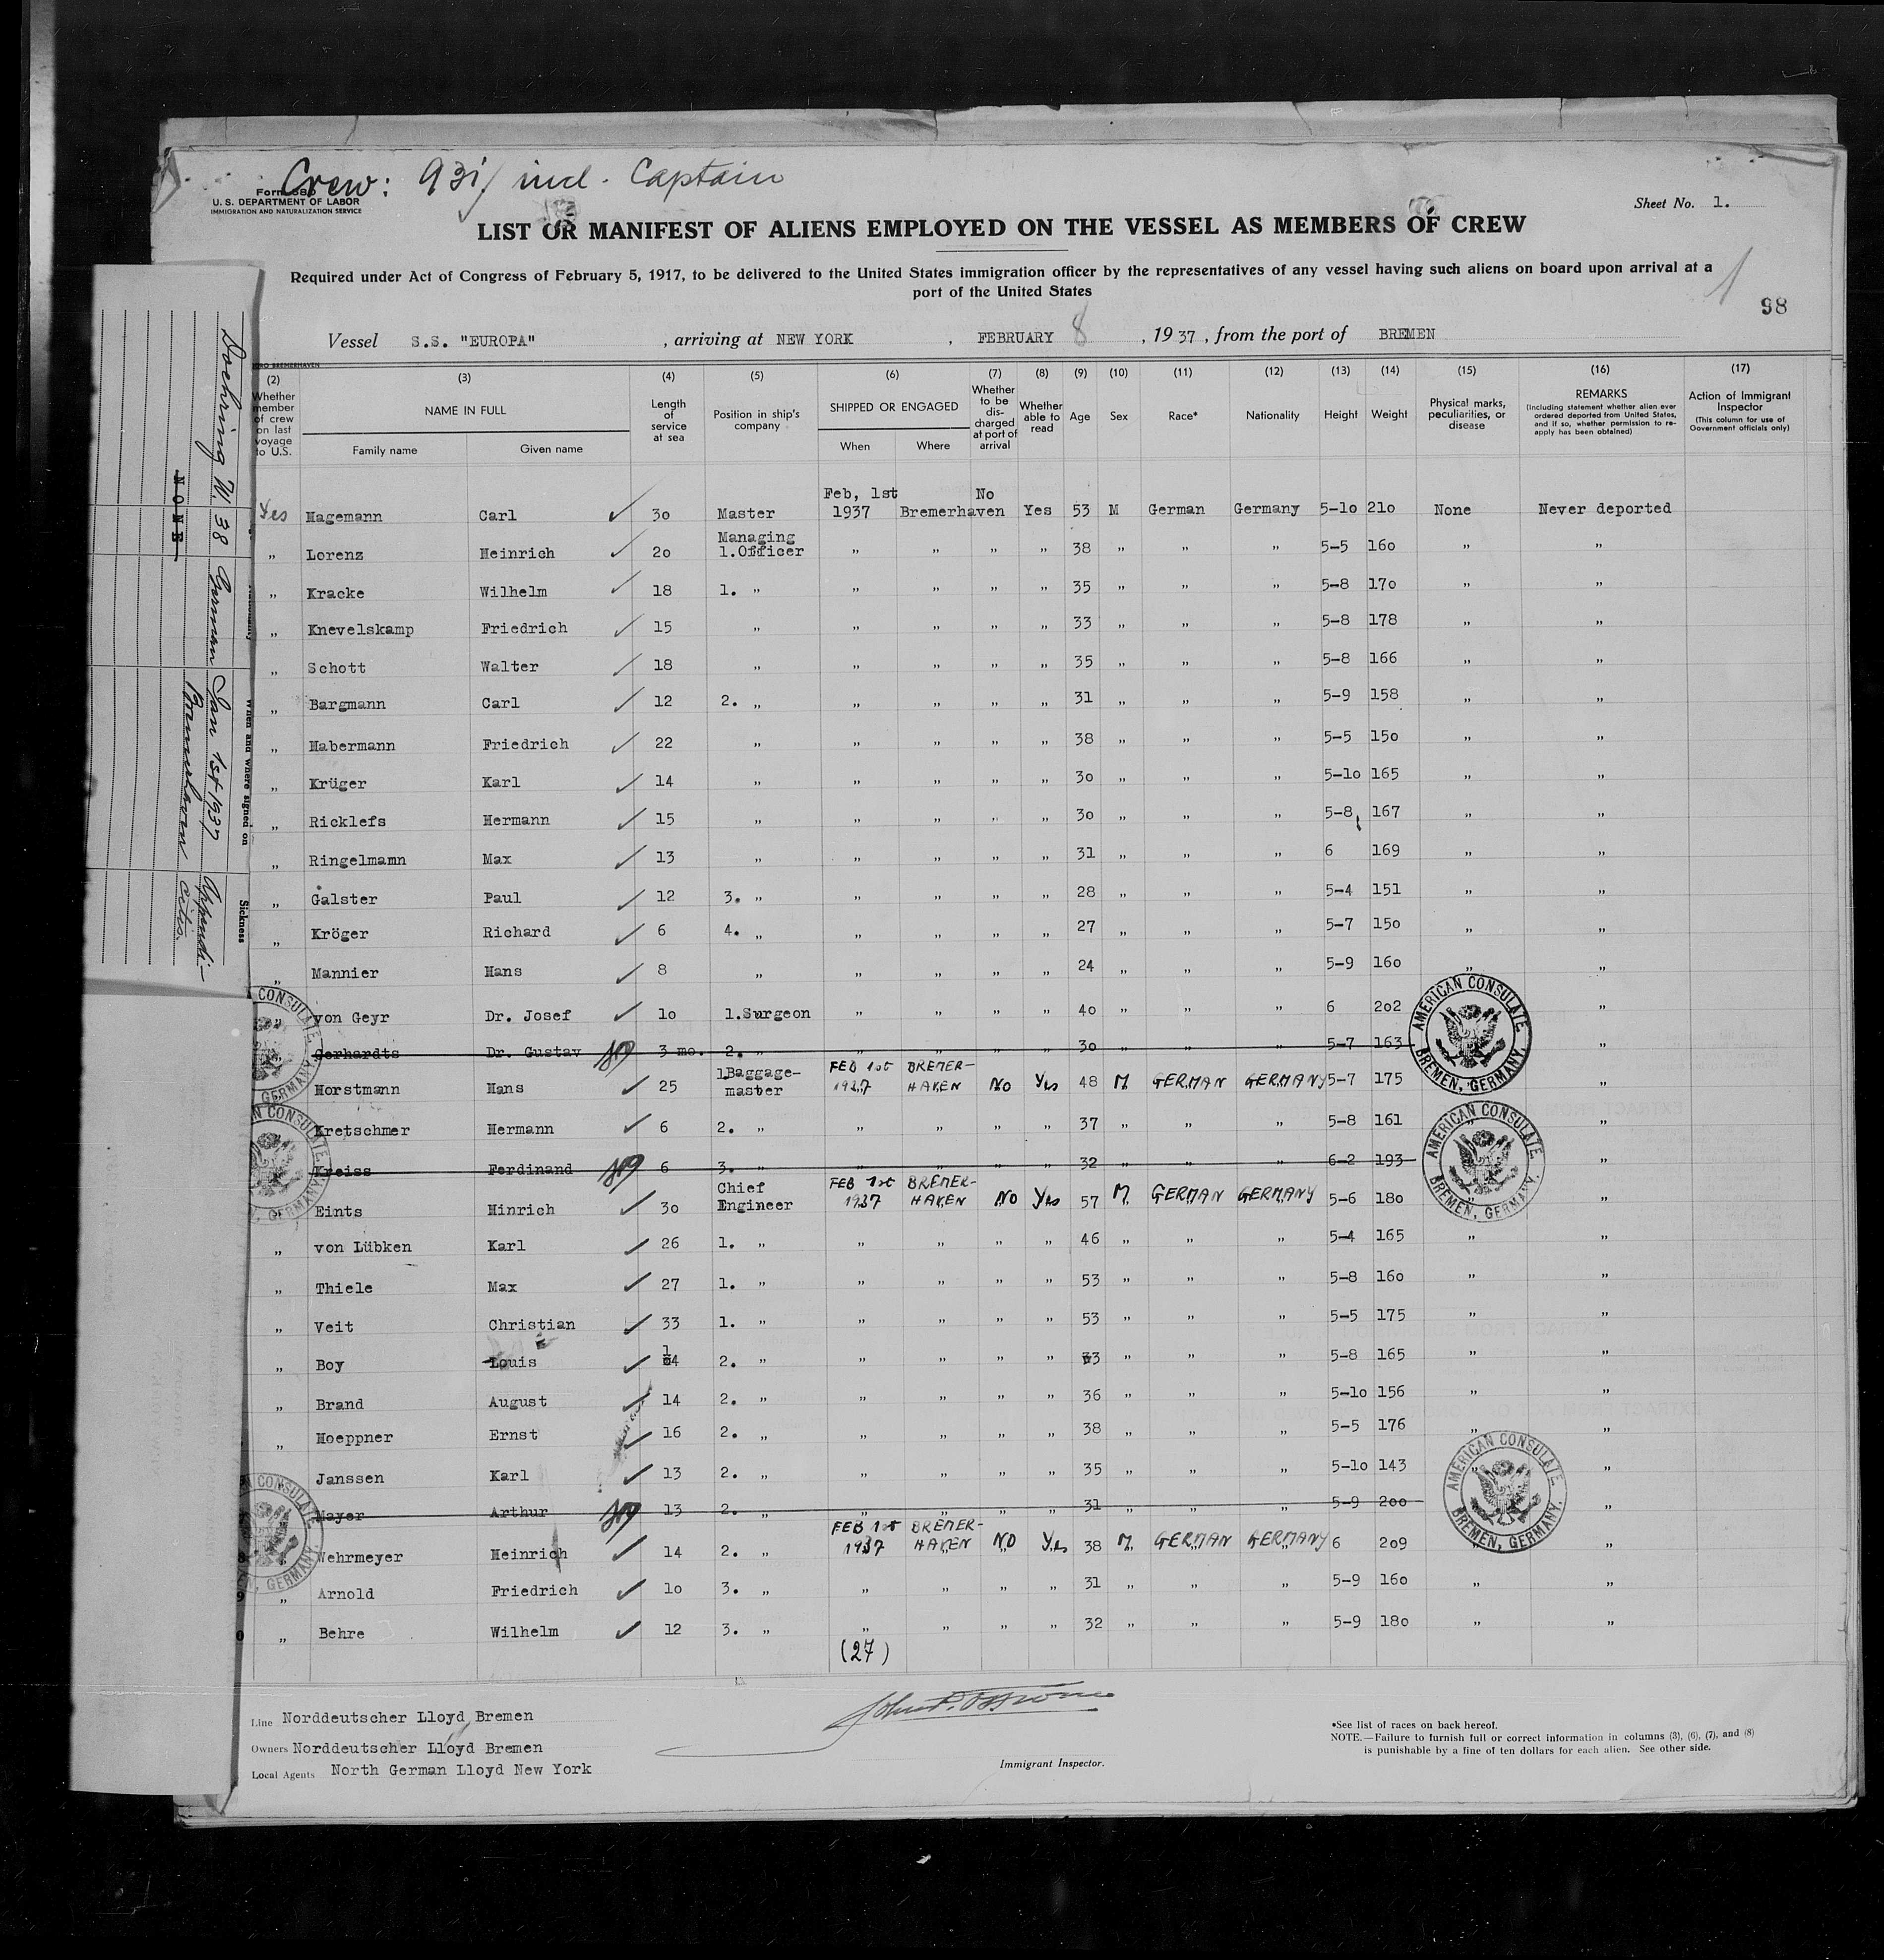 Crew: 931/ incl. Captain
Form 680
U. S. DEPARTMENT OF LABOR
IMMIGRATION AND NATURALIZATION SERVICE
Sheet No. 1.
LIST OR MANIFEST OF ALIENS EMPLOYED ON THE VESSEL AS MEMBERS OF CREW
Required under Act of Congress of February 5, 1917, to be delivered to the United States immigration officer by the representatives of any vessel having such aliens on board upon arrival at a
port of the United States
98
Vessel S.S. "EUROPA" , arriving at NEW YORK , FEBRUARY 8 , 1937 , from the port of BREMEN
(2) (3) (4) (5) (6) (7) (8) (9) (10) (11) (12) (13) (14) (15) (16) (17)
Whether member of crew on last voyage to U.S. NAME IN FULL Family name Given name Length of service at sea Position in ship's company SHIPPED OR ENGAGED When Where Whether to be discharged at port of arrival Whether able to read Age Sex Race* Nationality Height Weight Physical marks, peculiarities, or disease REMARKS (Including statement whether alien ever ordered deported from United States, and if so, whether permission to reapply has been obtained) Action of Immigrant Inspector (This column for use of Government officials only)
Feb, 1st No
Yes Hagemann Carl 3o Master 1937 Bremerhaven Yes 53 M German Germany 5-1o 21o None Never deported
Managing
„ Lorenz Heinrich 2o 1.Officer „ „ „ „ 38 „ „ „ 5-5 16o „ „
„ Kracke Wilhelm 18 1. „ „ „ „ „ 35 „ „ „ 5-8 17o „ „
„ Knevelskamp Friedrich 15 „ „ „ „ „ 33 „ „ „ 5-8 178 „ „
„ Schott Walter 18 „ „ „ „ „ 35 „ „ „ 5-8 166 „ „
„ Bargmann Carl 12 2. „ „ „ „ „ 31 „ „ „ 5-9 158 „ „
„ Habermann Friedrich 22 „ „ „ „ „ 38 „ „ „ 5-5 15o „ „
„ Krüger Karl 14 „ „ „ „ „ 3o „ „ „ 5-1o 165 „ „
„ Ricklefs Hermann 15 „ „ „ „ „ 3o „ „ „ 5-8 167 „ „
„ Ringelmamn Max 13 „ „ „ „ „ 31 „ „ „ 6 169 „ „
„ Galster Paul 12 3. „ „ „ „ „ 28 „ „ „ 5-4 151 „ „
„ Kröger Richard 6 4. „ „ „ „ „ 27 „ „ „ 5-7 15o „ „
„ Mannier Hans 8 „ „ „ „ „ 24 „ „ „ 5-9 16o „ „
„ von Geyr Dr. Josef 1o 1.Surgeon „ „ „ „ 4o „ „ „ 6 2o2 „
Gerhardts Dr. Gustav 3 mo. 2. „ „ „ „ „ 3o „ „ „ 5-7 163 „
1.Baggage- FEB 1st BREMER-
Horstmann Hans 25 master 1937 HAVEN No Yes 48 M GERMAN GERMANY 5-7 175 „
Kretschmer Hermann 6 2. „ „ „ „ „ 37 „ „ „ 5-8 161 „ „
Kreiss Ferdinand 6 3. „ „ „ „ „ 32 „ „ „ 6-2 193 „
Chief FEB 1st BREMER-
Eints Hinrich 3o Engineer 1937 HAVEN NO Yes 57 M GERMAN GERMANY 5-6 18o „ „
„ von Lübken Karl 26 1. „ „ „ „ „ 46 „ „ „ 5-4 165 „ „
„ Thiele Max 27 1. „ „ „ „ „ 53 „ „ „ 5-8 16o „ „
„ Veit Christian 33 1. „ „ „ „ „ 53 „ „ „ 5-5 175 „ „
„ Boy Louis 14 2. „ „ „ „ „ 33 „ „ „ 5-8 165 „ „
„ Brand August 14 2. „ „ „ „ „ 36 „ „ „ 5-1o 156 „ „
„ Hoeppner Ernst 16 2. „ „ „ „ „ 38 „ „ „ 5-5 176 „ „
Janssen Karl 13 2. „ „ „ „ „ 35 „ „ „ 5-1o 143 „ „
Mayer Arthur 13 2. „ „ „ „ „ 31 „ „ „ 5-9 2oo „
FEB 1st BREMER-
Wehrmeyer Heinrich 14 2. „ 1937 HAVEN NO Yes 38 M GERMAN GERMANY 6 2o9 „ „
„ Arnold Friedrich 1o 3. „ „ „ „ „ 31 „ „ „ 5-9 16o „ „
„ Behre Wilhelm 12 3. „ „ „ „ „ 32 „ „ „ 5-9 18o „ „
(27)
AMERICAN CONSULATE
BREMEN, GERMANY.
AMERICAN CONSULATE
BREMEN, GERMANY.
AMERICAN CONSULATE
BREMEN, GERMANY.
Line Norddeutscher Lloyd Bremen
Owners Norddeutscher Lloyd Bremen
Local Agents North German Lloyd New York
Immigrant Inspector.
*See list of races on back hereof.
NOTE.—Failure to furnish full or correct information in columns (3), (6), (7), and (8)
is punishable by a fine of ten dollars for each alien. See other side.
When and where signed on
Sickness
Doehring W. 38 German Jan 1st 1937 Appendi-
Bremerhaven citis.
NONE